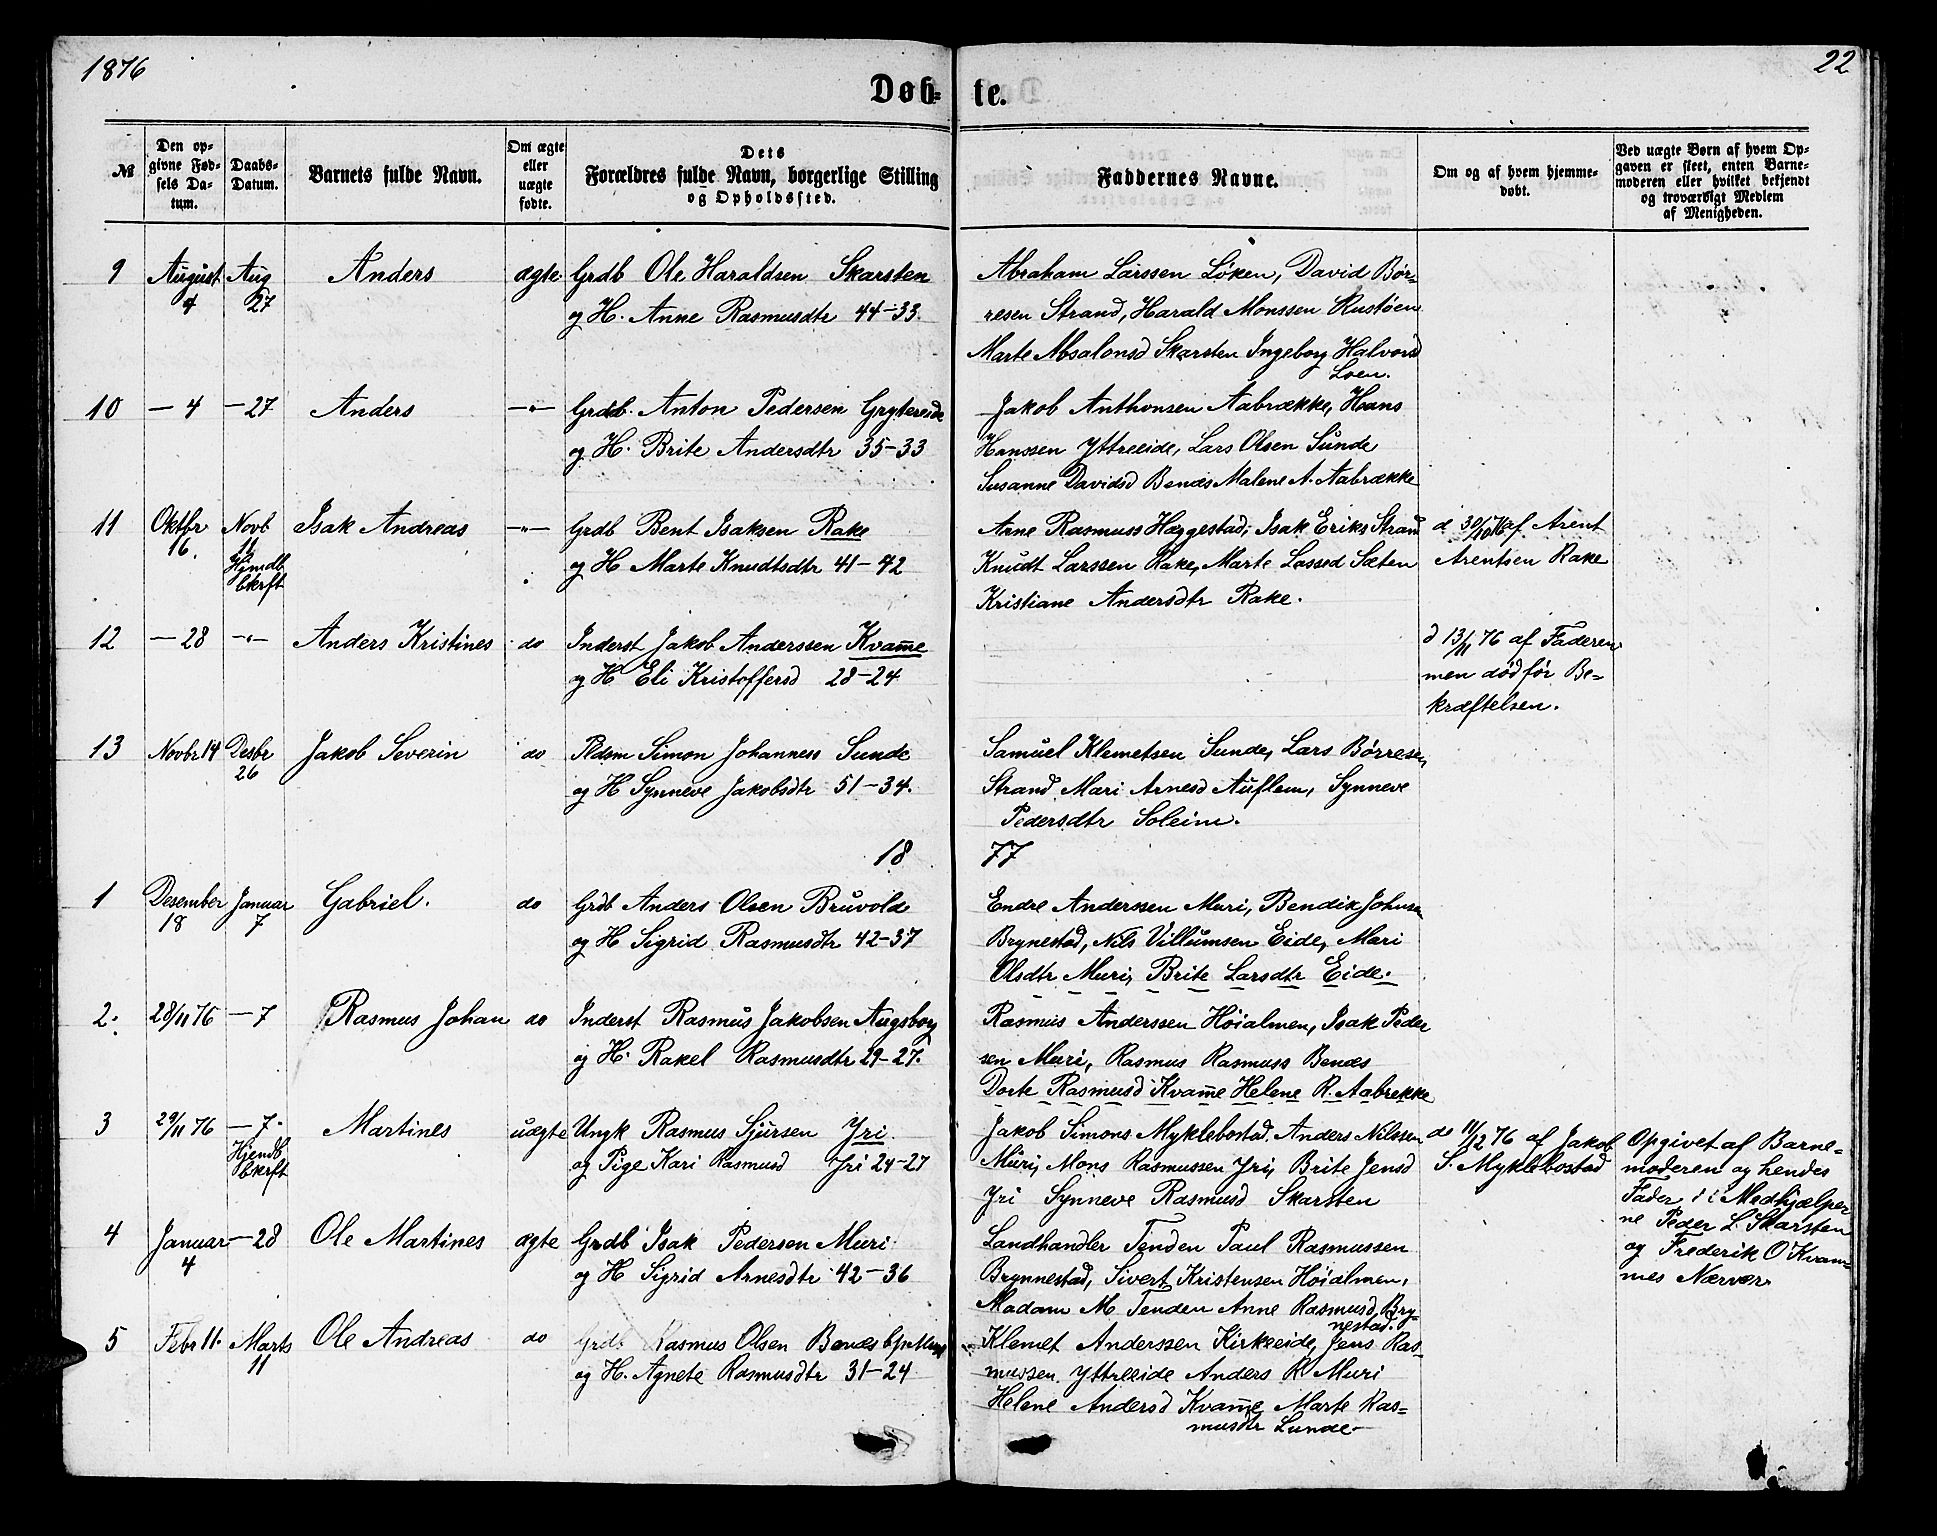 1876
22
Døb- te.
№
Den op-
givne Fød-
sels Da-
tum.
Daabs-
Datum.
Barnets fulde Navn.
Om ægte
eller
uægte
fødte.
Dets
Forældres fulde Navn, borgerlige Stilling
og Opholdssted.
Faddernes Navne.
Om og af hvem hjemme-
døbt.
Ved uægte Børn af hvem Op-
gaven er skeet, enten Barne-
moderen eller hvilket bekjendt
og troværdigt Medlem
af Menigheden.
9 August Aug Anders ægte. Grdb Ole Haraldsen Skarsten
4 27 og H. Anne Rasmusdtr 44-33.
Abraham Larssen Løken, David Bør-
resen Strand, Harald Monssen Rustøen
Marte Absalonsd Skarsten Ingeborg Halvorsd
Loen.
10 - 4 - 27 Anders -"- Grdb. Anton Pedersen Grytereide
og H. Brite Andersdtr 35-33
Jakob Anthonsen Aabrække, Hans
Hanssen Yttreeide, Lars Olsen Sunde
Susanne Davidsd Benæs Malene A. Aabrække
11 Oktbr Novb Isak Andreas -"- Grdb Bent Isaksen Rake
16. 11 og H Marte Knudtsdtr 41-42
Hjmdb
bkrft
Arne Rasmuss Hæggestad, Isak Eriks Strand
Knudt Larssen Rake, Marte Lassed Sæten
Kristiane Andersdtr Rake.
d 30/10 76 af Arent
Arentsen Rake
12 - 28 -"- Anders Kristines do Inderst Jakob Anderssen Kvam̅e
og H Eli Kristoffersd 28-24
d 13/11 76 af Faderen
men død før Be-
kræftelsen.
13 Novbr 14 Desbr Jakob Severin do Pldsm Simon Johanness Sunde
26 og H Synneve Jakobsdtr 51-34.
Samuel Klemetsen Sunde, Lars Børresen
Strand Mari Arnesd Auflem, Synneve
Pedersdtr Soleim.
18 77
1 Desember Januar Gabriel. do Grdb Anders Olsen Bruvold
18 7 og H Sigrid Rasmusdtr 42-37
Endre Anderssen Muri, Bendik Johnsen
Brynestad, Nils Villumsen Eide, Mari
Olsdtr Muri, Brite Larsdtr Eide.
2. 28/11 76 - 7 Rasmus Johan do Inderst Rasmus Jakobsen Augsborg
og H. Rakel Rasmusdtr 29-27.
Rasmus Anderssen Høialmen, Isak Peder
sen Muri, Rasmus Rasmuss Benæs
Dorte Rasmusd Kvam̅e Helene R. Aabrekke
3 29/11 76 - 7. Martines uægte Ungk Rasmus Sjursen Yri.
Hjemdb og Pige Kari Rasmusd Yri 24-27
bkrft
Jakob Simons Myklebostad. Anders Nilssen
Muri, Mons Rasmussen Yri, Brite Jensd
Yri Synneve Rasmusd Skarsten
do 11/12 76 af Jakob
S. Myklebostad
Opgivet af Barne-
moderen og hendes
Fader i Medhjælper
ne Peder L. Skarsten
og Frederik O Kvam-
mes Nærvær.
4 Januar - 28 Ole Martines ægte Grdb Isak Pedersen Muri
4 og H Sigrid Arnesdtr 42-36
Landhandler Tenden Paul Rasmussen
Brynnestad, Sivert Kristensen Høialmen,
Madam M Tenden Anne Rasmusd Bry-
nestad.
5 Febr 11. Marts Ole Andreas do Grdb Rasmus Olsen Benæs
11 og H. Agnete Rasmusdtr 31-24
Klemet Anderssen Kirkeeide, Jens Ras-
mussen Yttreeide Anders R Muri
Helene Andersd Kvam̅e Marte Ras-
musdtr Sunde